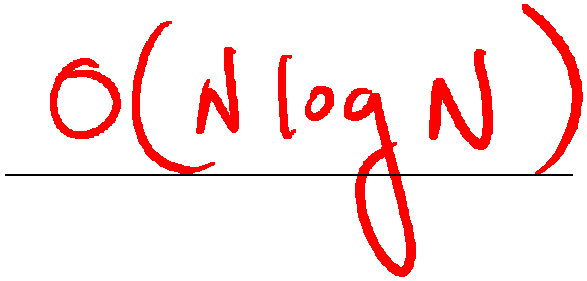 O(N log N)